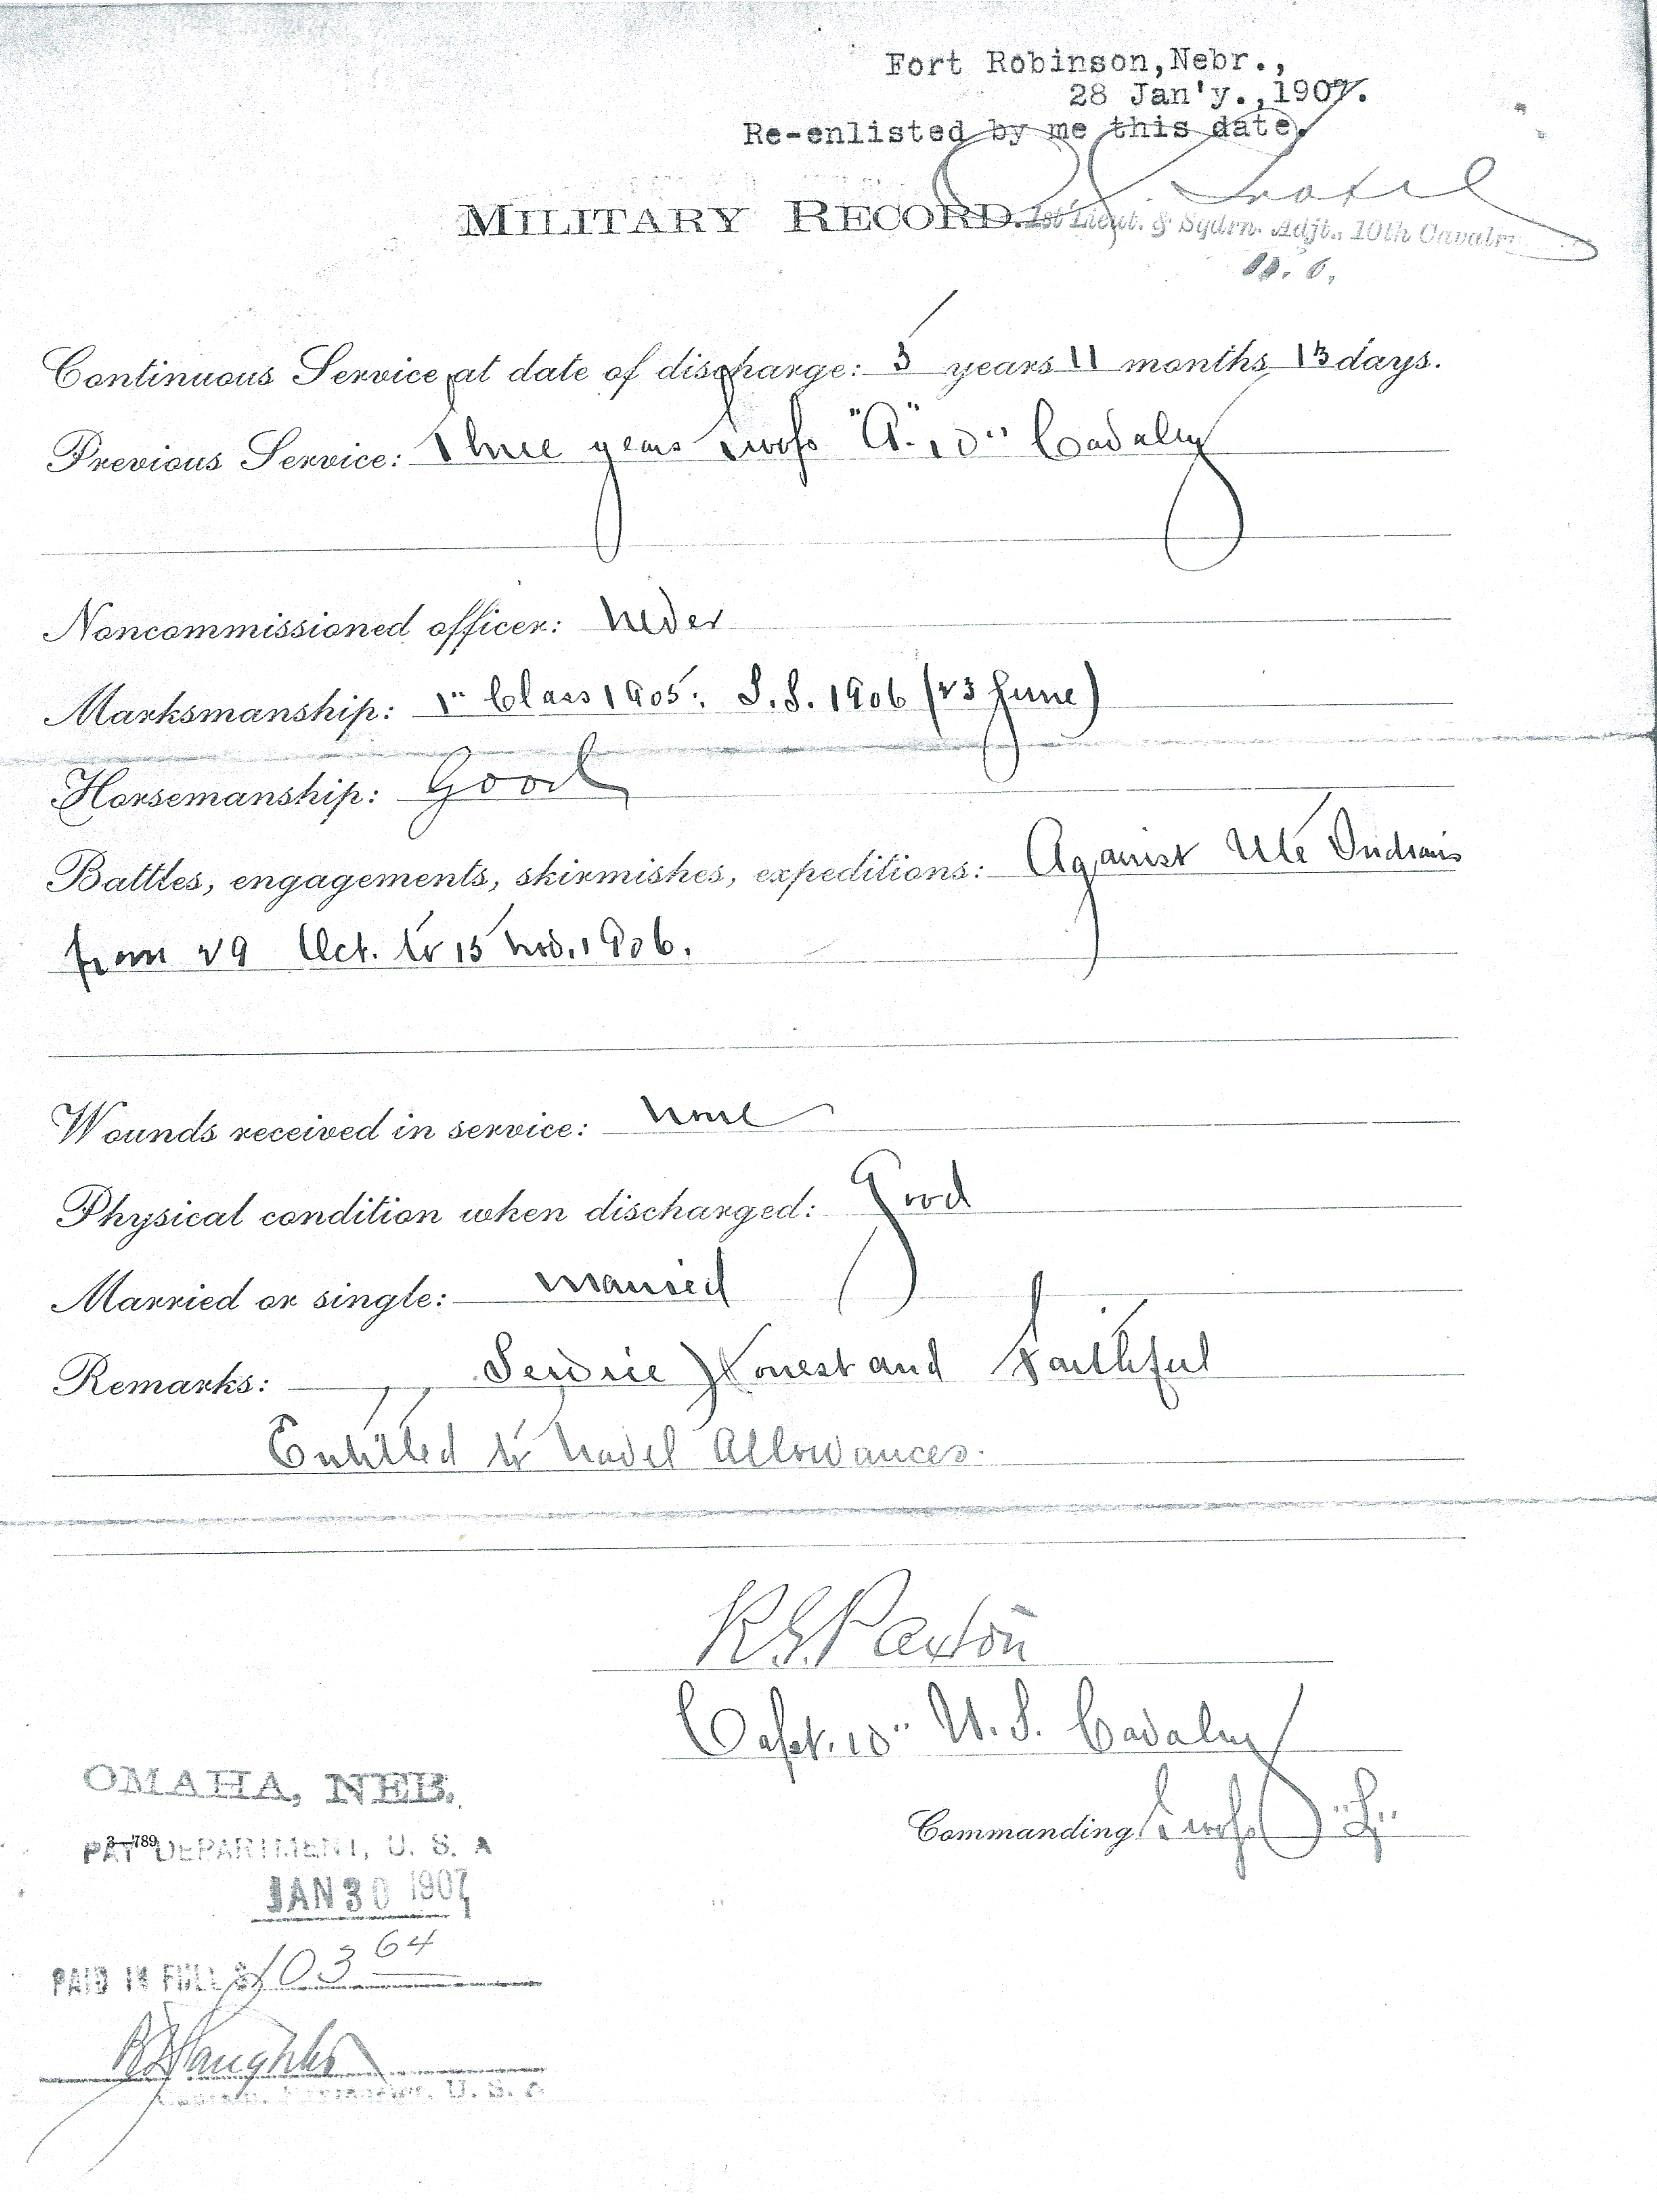 Fort Robinson, Nebr.,
28 Jan'y., 1907.
Re-enlisted by me this date.
MILITARY RECORD.
1st Lieut. & Sqdrn. Adjt., 10th Cavalry
Continuous Service at date of discharge: 5 years 11 months 13 days.
Previous Service: Three years Troop "A" 10" Cavalry
Noncommissioned officer: Never
Marksmanship: 1" Class 1905; S.S. 1906 (23 June)
Horsemanship: Good
Battles, engagements, skirmishes, expeditions: Against Ute Indians
from 29 Oct. to 15 Nov. 1906.
Wounds received in service: None
Physical condition when discharged: Good
Married or single: Married
Remarks: Service Honest and Faithful
Entitled to Travel Allowances.
R.G. Paxton
Capt. 10" U.S. Cavalry
Commanding Troop "L"
OMAHA, NEB.
3—789
PAY DEPARTMENT, U. S. A
JAN 30 1907
PAID IN FULL $103 64
U. S. A